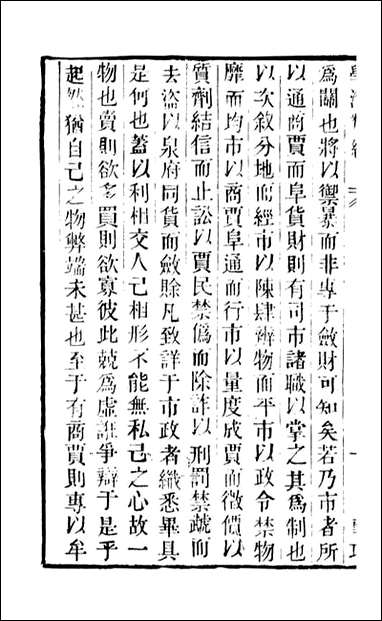 爲關也將以禦暴而非專于斂財可知矣若乃市者所
以通商賈而阜貨財則有司市諸職以掌之其爲制也
以次敘分地而經市以陳肆辨物而平市以政令禁物
靡而均市以商賈阜通而行市以量度成賈而徵儥以
質劑結信而止訟以賈民禁僞而除詐以刑罰禁虣而
去盜以泉府同貨而斂賒凡致詳于市政者纖悉畢具
是何也蓋以利相交人己相形不能無私己之心故一
物也賣則欲多買則欲寡彼此兢爲虛誑爭辯于是乎
起然猶自己之物弊端未甚也至于有商賈則專以牟